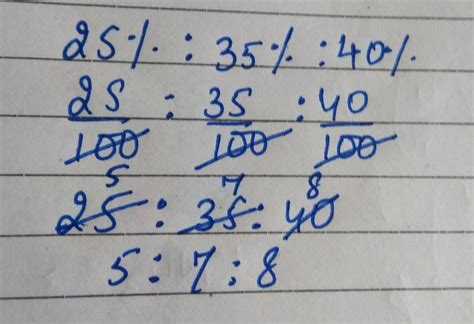 25% : 35% : 40%
25/100 : 35/100 : 40/100
5 7 8
25 : 35 : 40
5 : 7 : 8